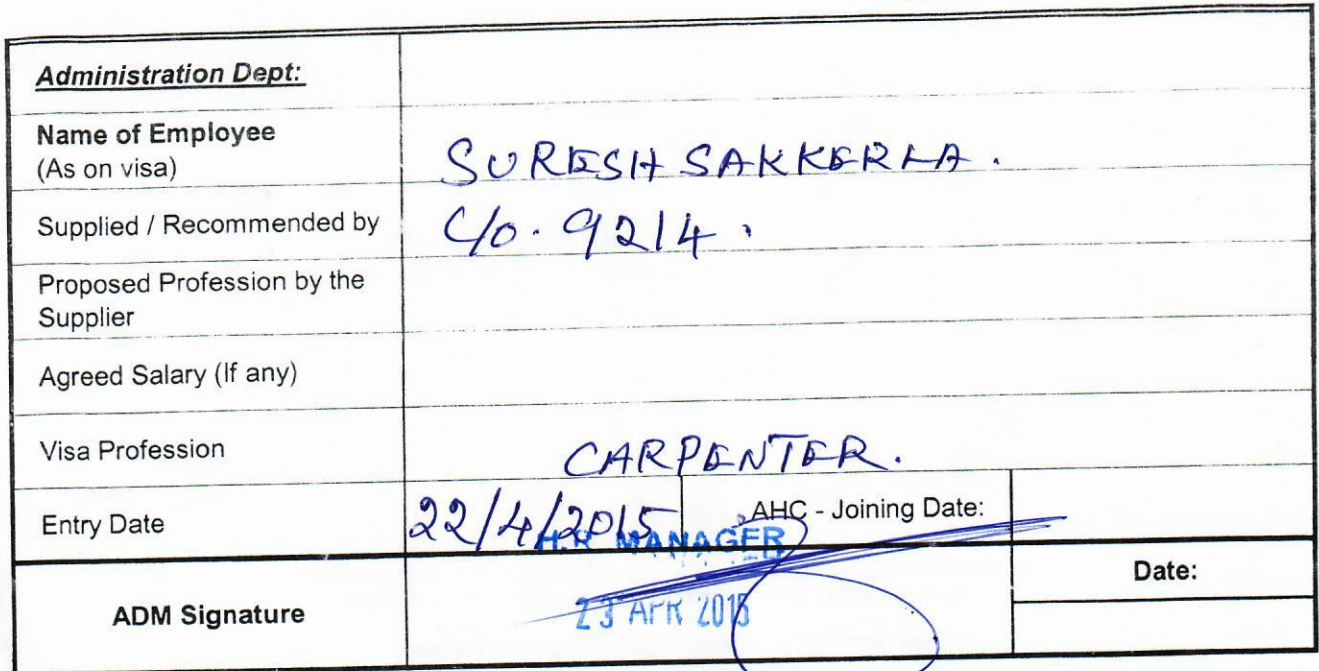 Administration Dept:
Name of Employee
(As on visa)
SURESH SAKKERLA.
Supplied / Recommended by
C/o. 9214.
Proposed Profession by the
Supplier
Agreed Salary (If any)
Visa Profession
CARPENTER.
Entry Date
22/4/2015
AHC - Joining Date:
H.R MANAGER
ADM Signature
23 APR 2015
Date: